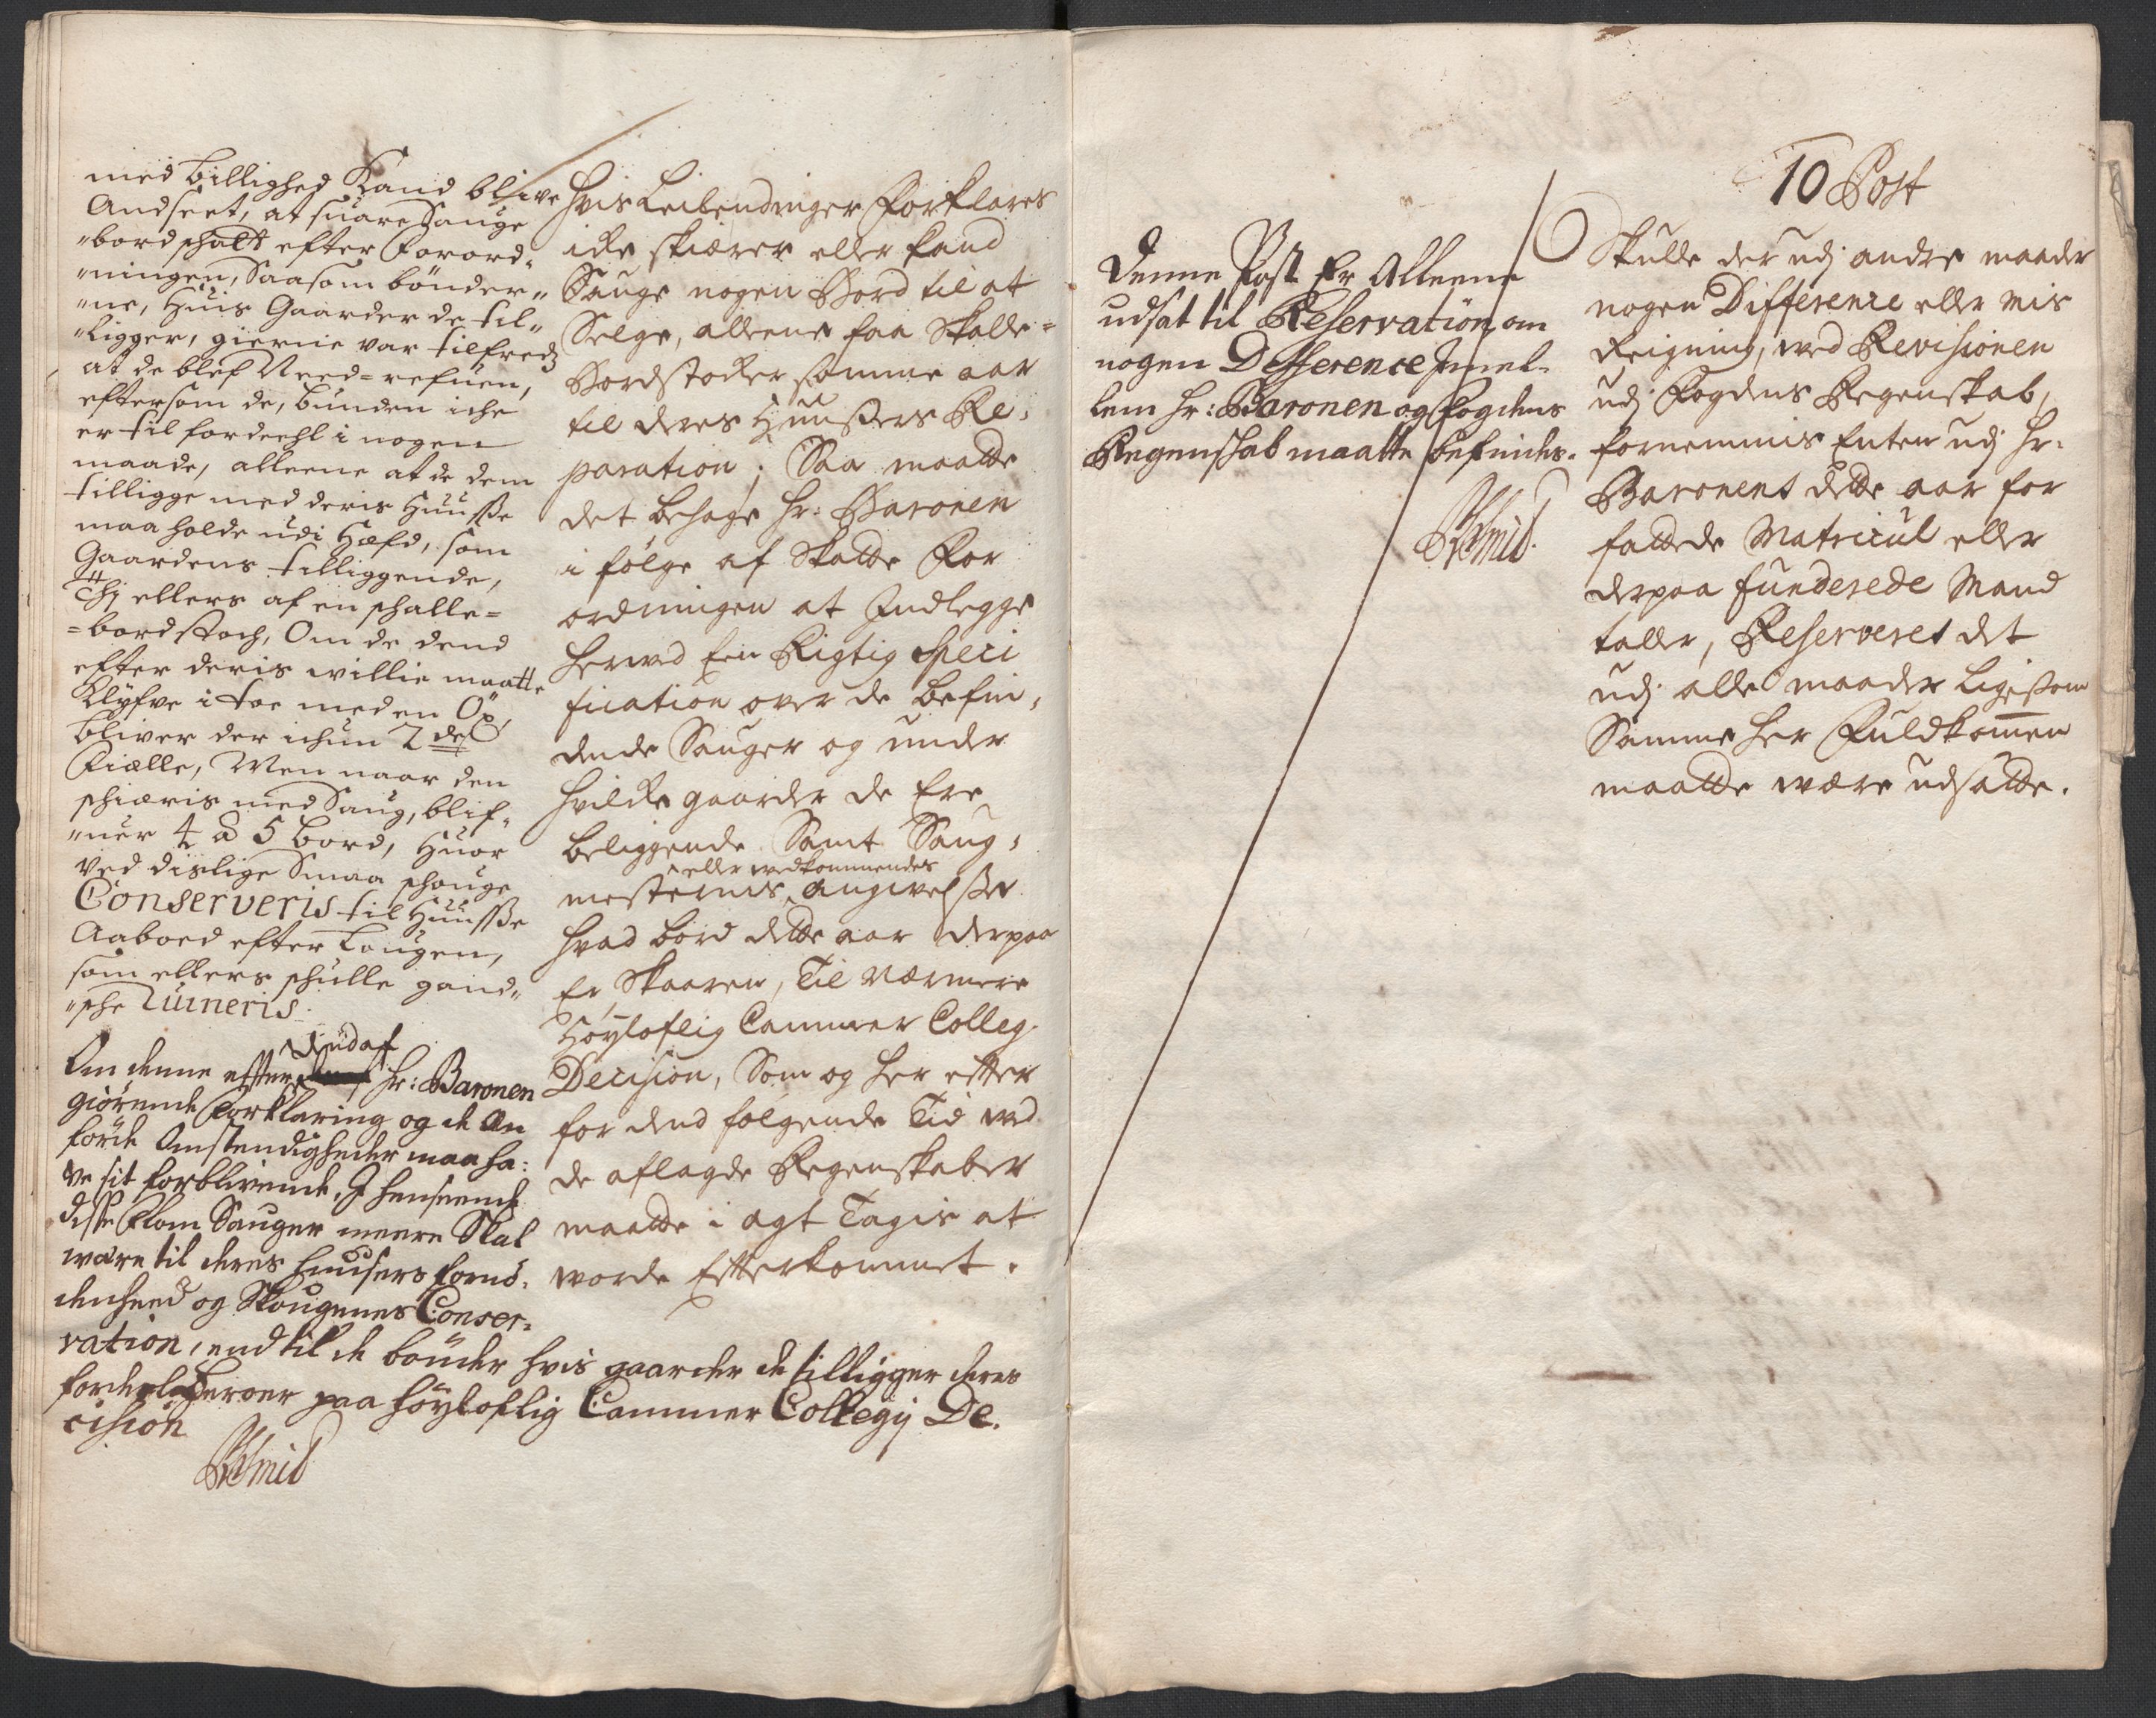 med billighed Kand blive
Andseet, at suare Sauge
"bord schatt efter Forord-
"ningen, Saasom bönder"
"ne, Huis Gaarder de til"
"ligger, gierne var tilfreds
at de blef Need-refuen,
eftersom de, bunden iche
er til fordeehl i nogen
maade, alleene at de dem
tilligge med deris Huusse
maa holde udi Hæfd, som
Gaardens tilliggende,
Thj ellers af en schalle-
-bord stoch, Om de dend
efter deris willie maatte
Klyfve i toe med en Öx,
bliver der ichun 2 de
Fiælle, Men naar den
schiæris med Saug, blif-
"uer 4 a 5 bord, Huor
ved dislige Smaa schouge
Conserveris til Huusse
Aaboed efter Lougen,
som ellers schulle gand"
"sche Ruineris.
Om denne efter dend af Hr: Baronen
giörende Forklaring og de An
förde Omstendigheder maa ha:
ve sit forblivende, I henseende
disse Flom Sauger meere Skal
være til deres huusers fornö-
denheed og Skougenes Conser-
vation, end til de bönder hvis gaarder de tilligger deres
fordeel beroer paa höyloflig Cammer Collegij De-
cision
Smid
Hvis Leilendinger Forklares
icke skiærer eller kand
Sauge nogen Bord til at
Selge, alleene faa Skalle-
Bordstocker samme aar
til deres Huussers Re-
paration; Saa maatte
det behage Hr: Baronen
i fölge af Skatte For
ordningen at Indlegge
herved Een Rigtig Speci
fication over de befin-
dende Sauger og under
hvilcke gaarder de Ere
beliggende Samt Saug-
mesternis eller vedkommendes angivelsser
hvad bord dette aar derpaa
Er Skaaren, Til nærmere
Höyloflig Cammer Colleg.
Decision, Som og her efter
for dend fölgende Tid ved
de aflagde Regenskaber
maatte i agt Tagis at
vorde Efterkommet.
Denne Post Er Alleene
udsat til Reservation, om
nogen Defference Imel-
lem Hr: Baronen og Fogdens
Regenschab maatte befindes.
Smid.
10 Post
Skulle der udj andre maader
nogen Difference eller Mis
Reigning, ved Revisionen
udj Fogdens Regenskab,
fornemmis Enten udj Hr:
Baronens dette aar for
fattede Matricul eller
derpaa funderede Mand
taller, Reserveres det
udj alle maader Ligesom
Samme her Fuldkommen
maatte være udsatte.